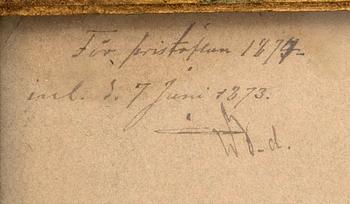 För pristäflan 1874
inl. d. 7 Juni 1873.
W.d.